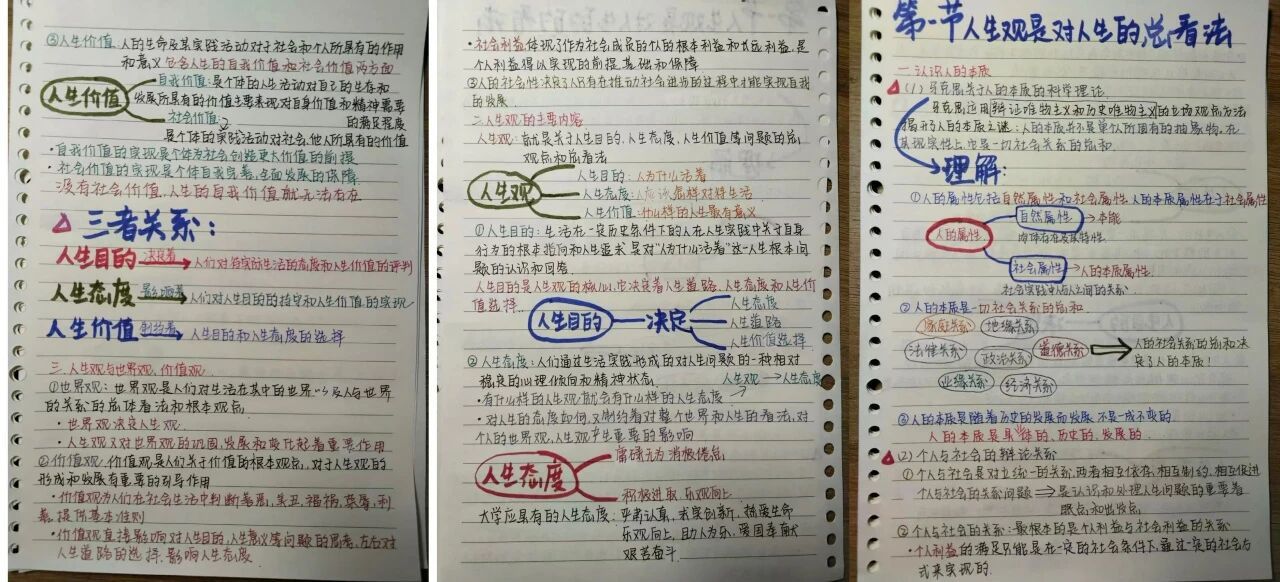 第一节 人生观是对人生的总看法
一.认识人的本质
(1)马克思关于人的本质的科学理论
马克思运用辩证唯物主义和历史唯物主义的立场观点方法
揭示了人的本质之谜:人的本质并不是单个人所固有的抽象物,在
其现实性上,它是一切社会关系的总和
理解:
①人的属性包括自然属性和社会属性,人的本质属性在于社会属性
人的属性
自然属性→本能
肉体存在及其特性
社会属性→人的本质属性
社会实践中人与人之间的关系
②人的本质是一切社会关系的总和
家庭关系 地缘关系
法律关系 政治关系 道德关系
业缘关系 经济关系
人的社会关系的总和决
定了人的本质!
③人的本质是随着历史的发展而发展 不是一成不变的
人的本质是具体的、历史的、发展的
(2)个人与社会的辩证关系
①个人与社会是对立统一的关系,两者相互依存,相互制约,相互促进
个人与社会的关系问题⇒是认识和处理人生问题的重要着
眼点和出发点
②个人与社会的关系:最根本的是个人利益与社会利益的关系
·个人利益的满足只能是在一定的社会条件下,通过一定的社会方
式来实现的
·社会利益体现了作为社会成员的个人的根本利益和长远利益,是
个人利益得以实现的前提、基础和保障
③人的社会性决定了人只有在推动社会进步的过程中才能实现自我
的发展
二.人生观的主要内容
人生观:就是关于人生目的、人生态度、人生价值等问题的总
观点和总看法
人生观
人生目的:人为什么活着
人生态度:人应该怎样对待生活
人生价值:什么样的人生最有意义
①人生目的:生活在一定历史条件下的人在人生实践中关于自身
行为的根本指向和人生追求 是对"人为什么活着"这一人生根本问
题的认识和回答
人生目的是人生观的核心,它决定着人生道路、人生态度和人生价
值选择
人生目的—决定
人生态度
人生道路
人生价值选择
②人生态度:人们通过生活实践形成的对人生问题的一种相对
稳定的心理倾向和精神状态 人生观→人生态度
·有什么样的人生观,就会有什么样的人生态度
·对人生的态度如何,又制约着对整个世界和人生的看法,对
个人的世界观,人生观产生重要的影响
人生态度
庸碌无为 消极倦怠
积极进取 乐观向上
大学应具有的人生态度:严肃认真,求实创新,热爱生命
乐观向上,助人为乐,爱国奉献
艰苦奋斗
③人生价值:人的生命及其实践活动对于社会和个人所具有的作用
和意义 包含人生的自我价值和社会价值两方面
人生价值
自我价值:是个体的人生活动对自己的生存和
发展所具有的价值主要表现对自身价值和精神需要
的满足程度
社会价值:
是个体的实践活动对社会,他人所具有的价值
·自我价值的实现是个体为社会创造更大价值的前提
·社会价值的实现是个体自我完善,全面发展的保障
没有社会价值,人生的自我价值就无法存在
三者关系:
人生目的 决定着→人们对待实际生活的态度和人生价值的评判
人生态度 影响着→人们对人生目的的持守和人生价值的实现
人生价值 制约着→人生目的和人生态度的选择
三.人生观与世界观、价值观
①世界观:世界观是人们对生活在其中的世界以及人与世界
的关系的总体看法和根本观点
·世界观决定人生观
·人生观又对世界观的巩固,发展和变化起着重要作用
②价值观:价值观是人们关于价值的根本观点,对于人生观的
形成和发展有重要的引导作用
·价值观为人们在社会生活中判断善恶,美丑,福祸,荣辱,利
害,提供基本准则
·价值观直接影响对人生目的,人生意义等问题的思考,左右对
人生道路的选择,影响人生态度